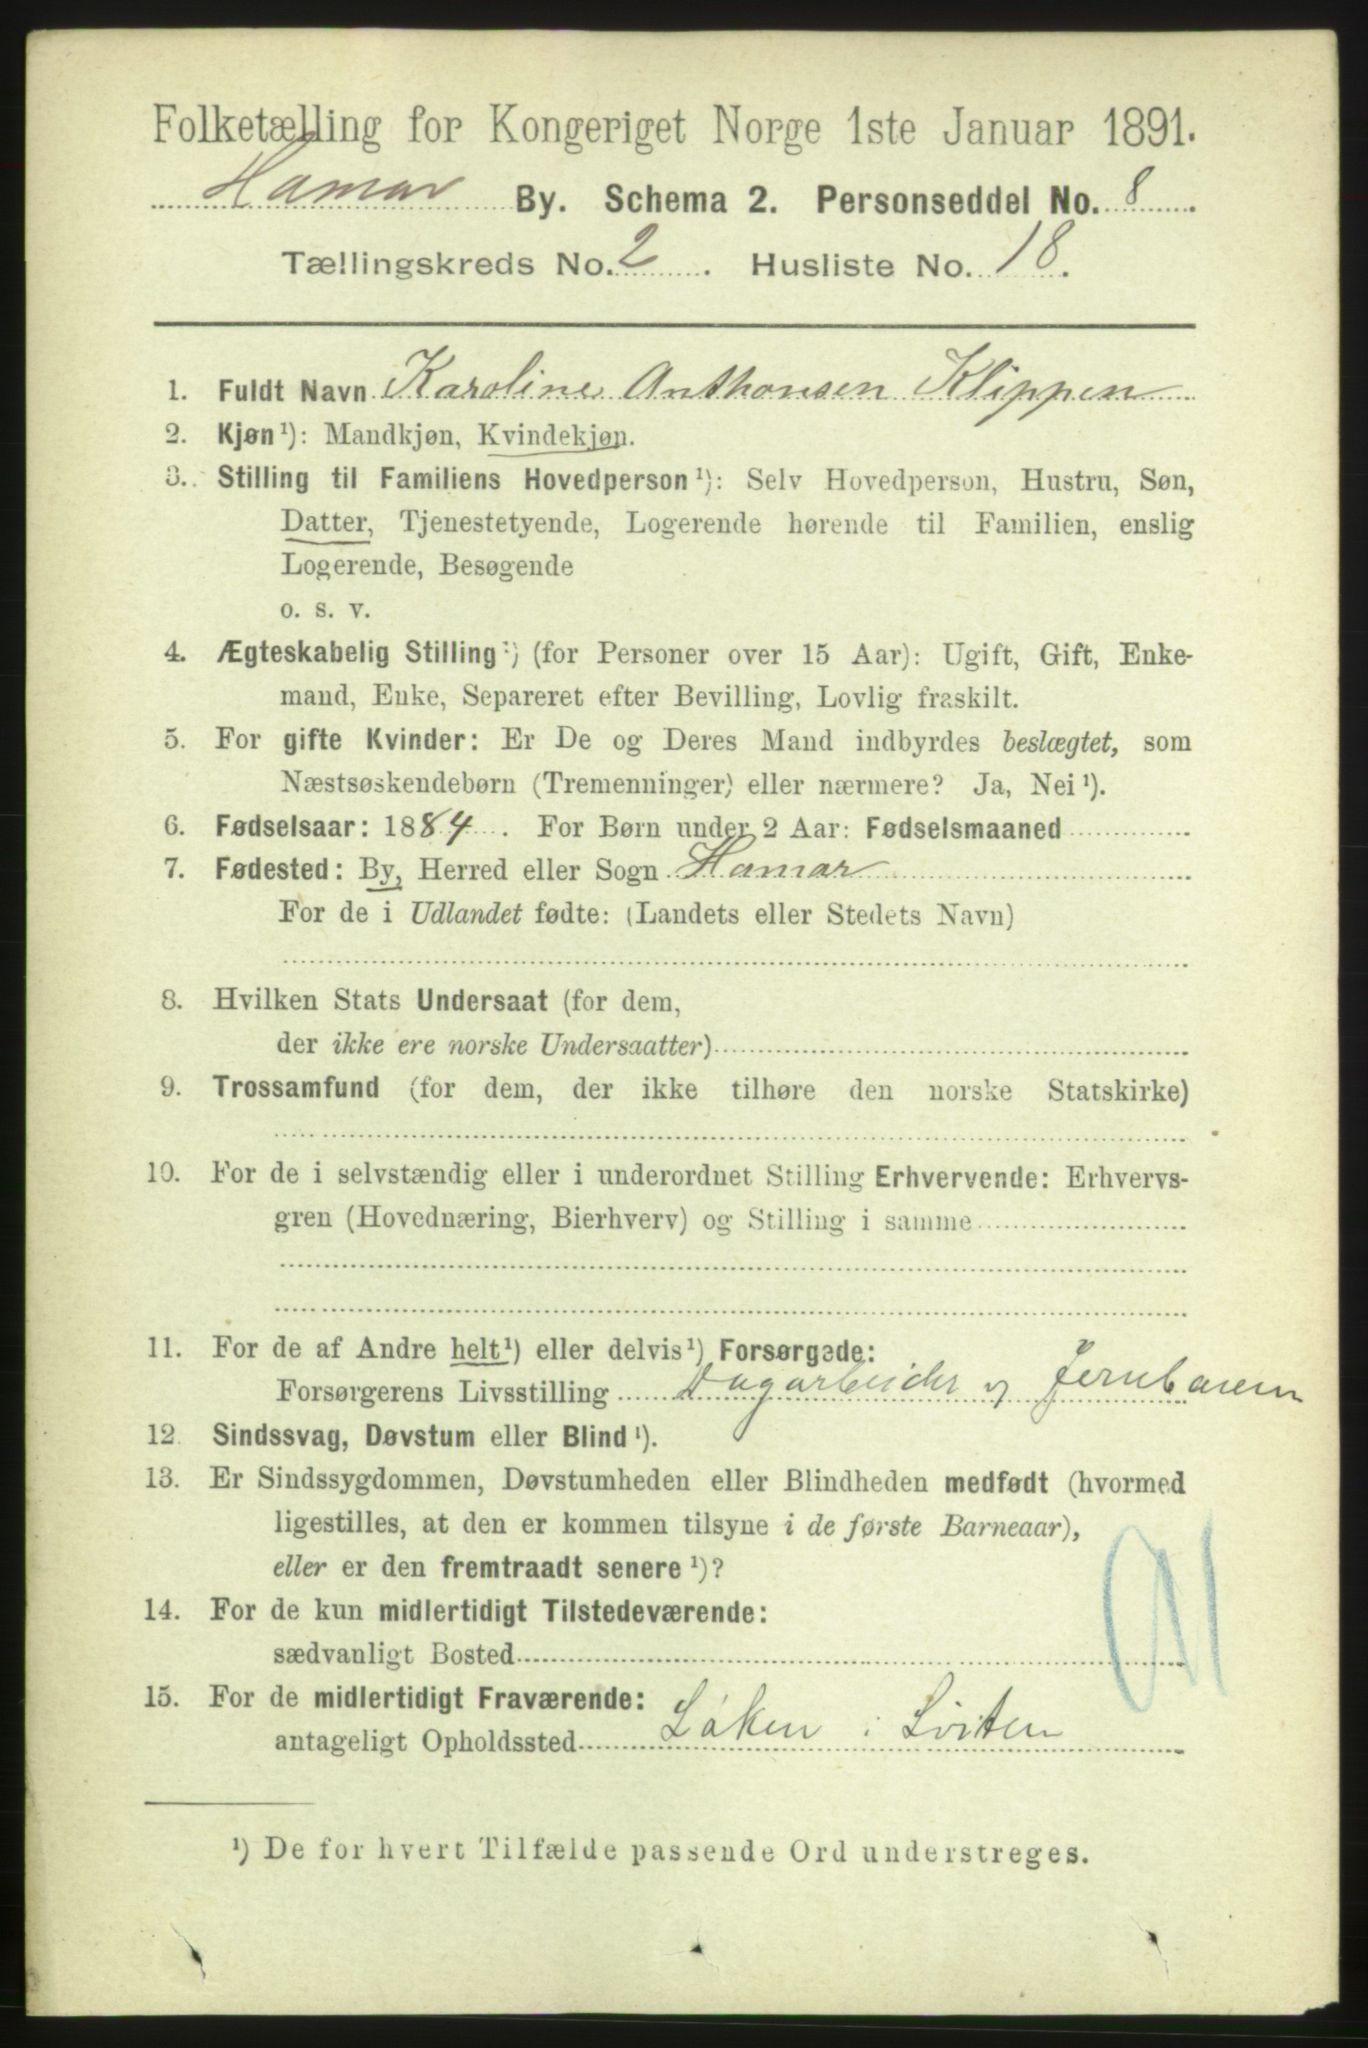 Folketælling for Kongeriget Norge 1ste Januar 1891.
Hamar By. Schema 2. Personseddel No. 8
Tællingskreds No. 2. Husliste No. 18.
1. Fuldt Navn Karoline Anthonsen Klippen
2. Kjøn ¹): Mandkjøn, Kvindekjøn.
3. Stilling til Familiens Hovedperson ¹): Selv Hovedperson, Hustru, Søn,
Datter, Tjenestetyende, Logerende hørende til Familien, enslig
Logerende, Besøgende
o. s. v.
4. Ægteskabelig Stilling ¹) (for Personer over 15 Aar): Ugift, Gift, Enke-
mand, Enke, Separeret efter Bevilling, Lovlig fraskilt.
5. For gifte Kvinder: Er De og Deres Mand indbyrdes beslægtet, som
Næstsøskendebørn (Tremenninger) eller nærmere? Ja, Nei ¹).
6. Fødselsaar: 1884. For Børn under 2 Aar: Fødselsmaaned
7. Fødested: By, Herred eller Sogn Hamar
For de i Udlandet fødte: (Landets eller Stedets Navn)
8. Hvilken Stats Undersaat (for dem,
der ikke ere norske Undersaatter)
9. Trossamfund (for dem, der ikke tilhøre den norske Statskirke)
10. For de i selvstændig eller i underordnet Stilling Erhvervende: Erhvervs-
gren (Hovednæring, Bierhverv) og Stilling i samme
11. For de af Andre helt ¹) eller delvis ¹) Forsørgede:
Forsørgerens Livsstilling Dagarbeider v Jernbanen
12 Sindssvag, Døvstum eller Blind ¹).
13. Er Sindssygdommen, Døvstumheden eller Blindheden medfødt (hvormed
ligestilles, at den er kommen tilsyne i de første Barneaar),
eller er den fremtraadt senere ¹)?
14. For de kun midlertidigt Tilstedeværende:
sædvanligt Bosted
15. For de midlertidigt Fraværende:
antageligt Opholdssted Løken i Løiten
¹) De for hvert Tilfælde passende Ord understreges.